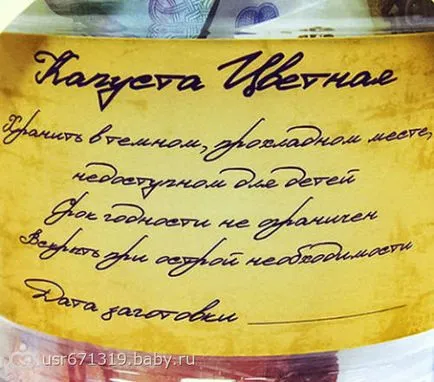 Капуста Цветная
Хранить в темном, прохладном месте,
недоступном для детей
Срок годности не ограничен
Вскрыть при острой необходимости
Дата заготовки
usr671319.baby.ru